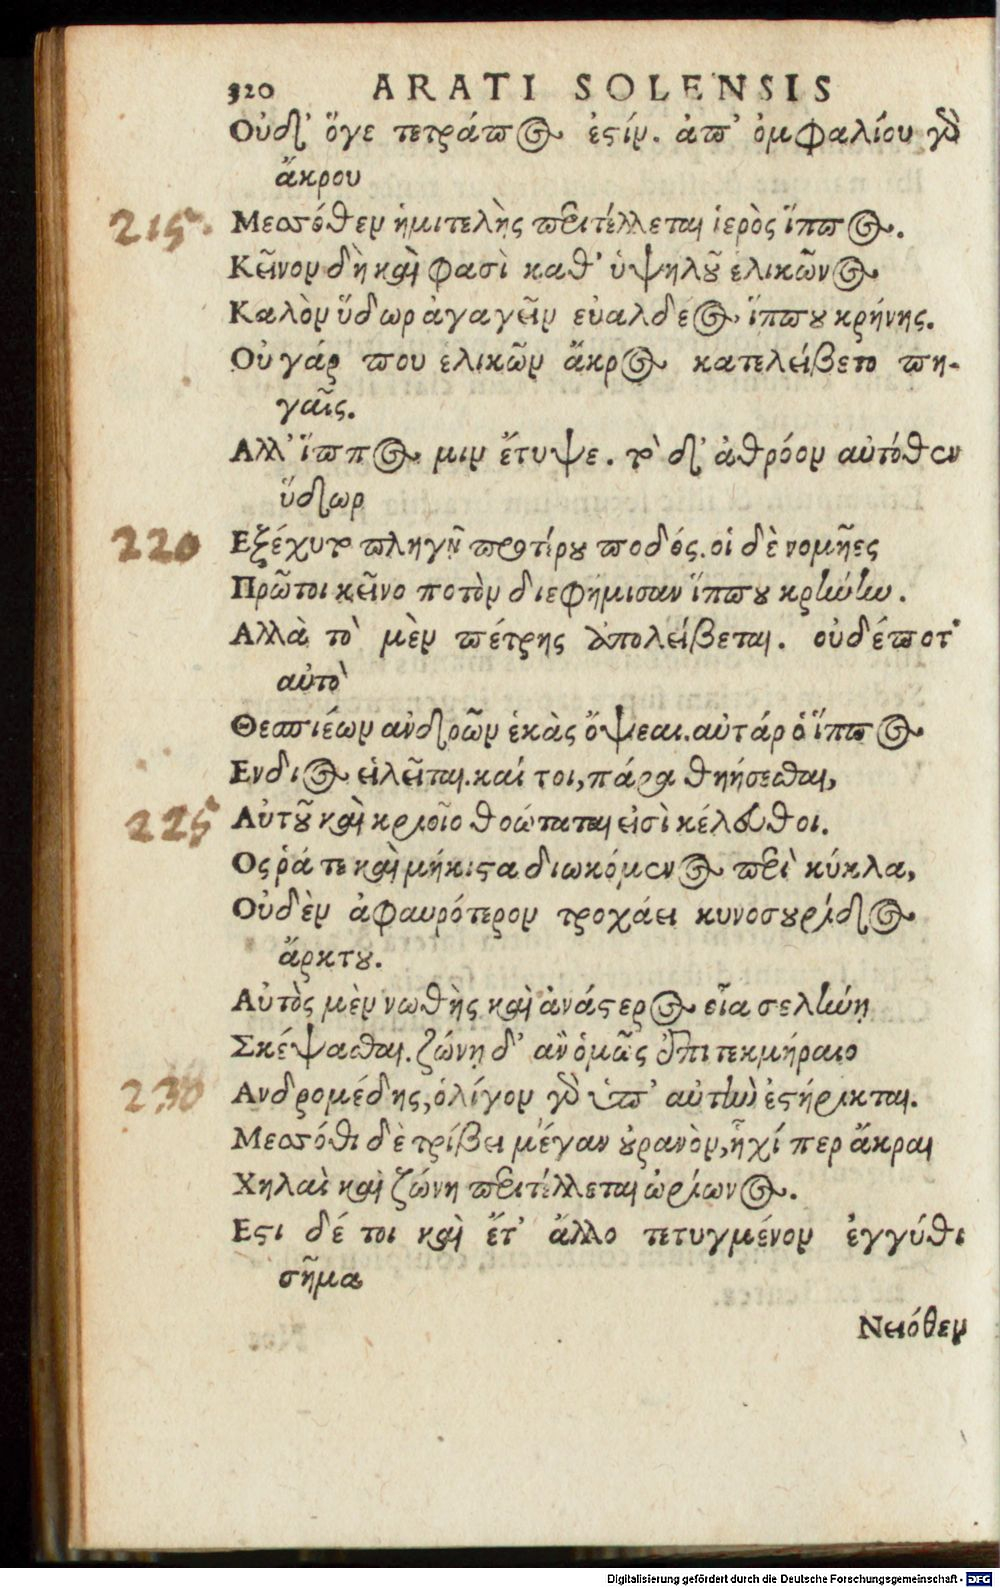 320 ARATI SOLENSIS
Οὐδ' ὅγε τετράπος ἐστίν. ἀπ' ὀμφαλίου γδ
ἄκρου
215. Μεσόθεν ἡμιτελὴς περιτέλλεται ἱερὸς ἵππος.
Κεῖνον δὴ καὶ φασὶ καθ' ὑψηλοῦ ελικῶνος
Καλὸν ὕδωρ ἀγαγεῖν εὐαλδέος ἵππου κρήνης.
Οὐ γάρ που ελικῶν ἄκρος κατελείβετο πη-
γαῖς.
Αλλ' ἵππος μιν ἔτυψε. τὸ δ' ἀθρόον αὐτόθεν
ὕδωρ
220 Εξέχυτο πληγῇ προτέρου ποδός. οἱ δὲ νομῆες
Πρῶτοι κεῖνο ποτὸν διεφήμισαν ἵππου κρήνην.
Αλλὰ τὸ μὲν πέτρης ἀπολείβεται. οὐδέποτ'
αὐτὸ
Θεσπιέων ανδρῶν ἑκὰς ὄψεαι. αὐτάρ ὁ ἵππος
Ενδιος εἱλεῖται. καί τοι, πάρα θηήσεσθαι,
225 Αὐτοῦ καὶ κριοῖο θοώταται εἰσὶ κέλευθοι.
Ος ῥά τε καὶ μήκιστα διωκόμενος περὶ κύκλα,
Οὐδὲν ἀφαυρότερον τροχάει κυνοσουρίδος
ἄρκτου.
Αὐτὸς μὲν νωθὴς καὶ ἀνάστερος εἷα σελήνῃ
Σκέψασθαι. ζώνῃ δ' αν ὁμῶς ἐπιτεκμήραιο
230 Ανδρομέδης, ὀλίγον γδ ὑπ' αὐτὴν ἐστήρικται.
Μεσόθι δὲ τρίβει μέγαν οὐρανὸν, ἧχί περ ἄκραι
Χηλαὶ καὶ ζώνη περιτέλλεται ὠρίωνος.
Εστι δέ τοι καὶ ἔτ' ἄλλο τετυγμένον ἐγγύθι
σῆμα
Νειόθεν
Digitalisierung gefördert durch die Deutsche Forschungsgemeinschaft - DFG